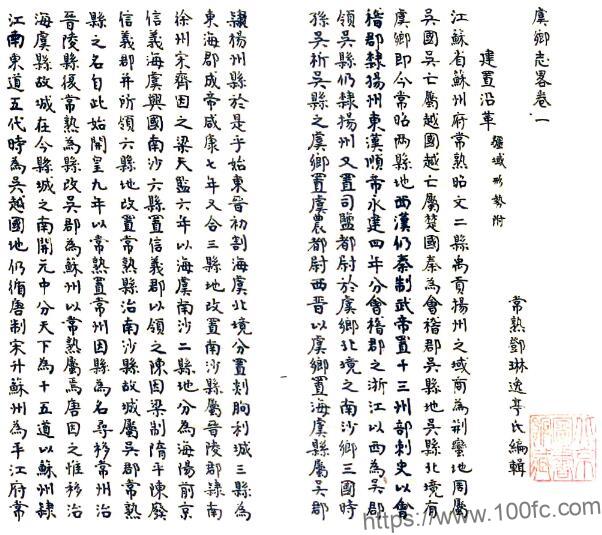 虞鄉志畧卷一
常熟鄧琳逸亭氏編輯
建置沿革 疆域形勢附
江蘇省蘇州府常熟昭文二縣禹貢揚州之域商為荆蠻地周屬
吳國吳亡屬越國越亡屬楚國秦為會稽郡吳縣地吳縣北境有
虞鄉即今常昭兩縣地西漢仍秦制武帝置十三州部刺史以會
稽郡隸揚州東漢順帝永建四年分會稽郡之浙江以西為吳郡
領吳縣仍隸揚州又置司鹽都尉於虞鄉北境之南沙鄉三國時
孫吳析吳縣之虞鄉置虞農都尉西晋以虞鄉置海虞縣屬吳郡
隸楊州縣於是乎始東晉初割海虞北境分置剡朐利城三縣為
東海郡成帝咸康七年又合三縣地改置南沙縣屬晉陵郡隸南
徐州宋齊因之梁天監六年以海虞南沙二縣地分為海陽前京
信義海虞興國南沙六縣置信義郡以領之陳因梁制隋平陳廢
信義郡并所領六縣地改置常熟縣治南沙縣故城屬吳郡常熟
縣之名自此始開皇九年以常熟置常州因縣為名尋移常州治
晉陵縣復常熟為縣改吳郡為蘇州以常熟屬焉唐因之惟移治
海虞縣故城在今縣城之南開元中分天下為十五道以蘇州隸
江南東道五代時為吳越國地仍循唐制宋升蘇州為平江府常
https://www.100fc.com